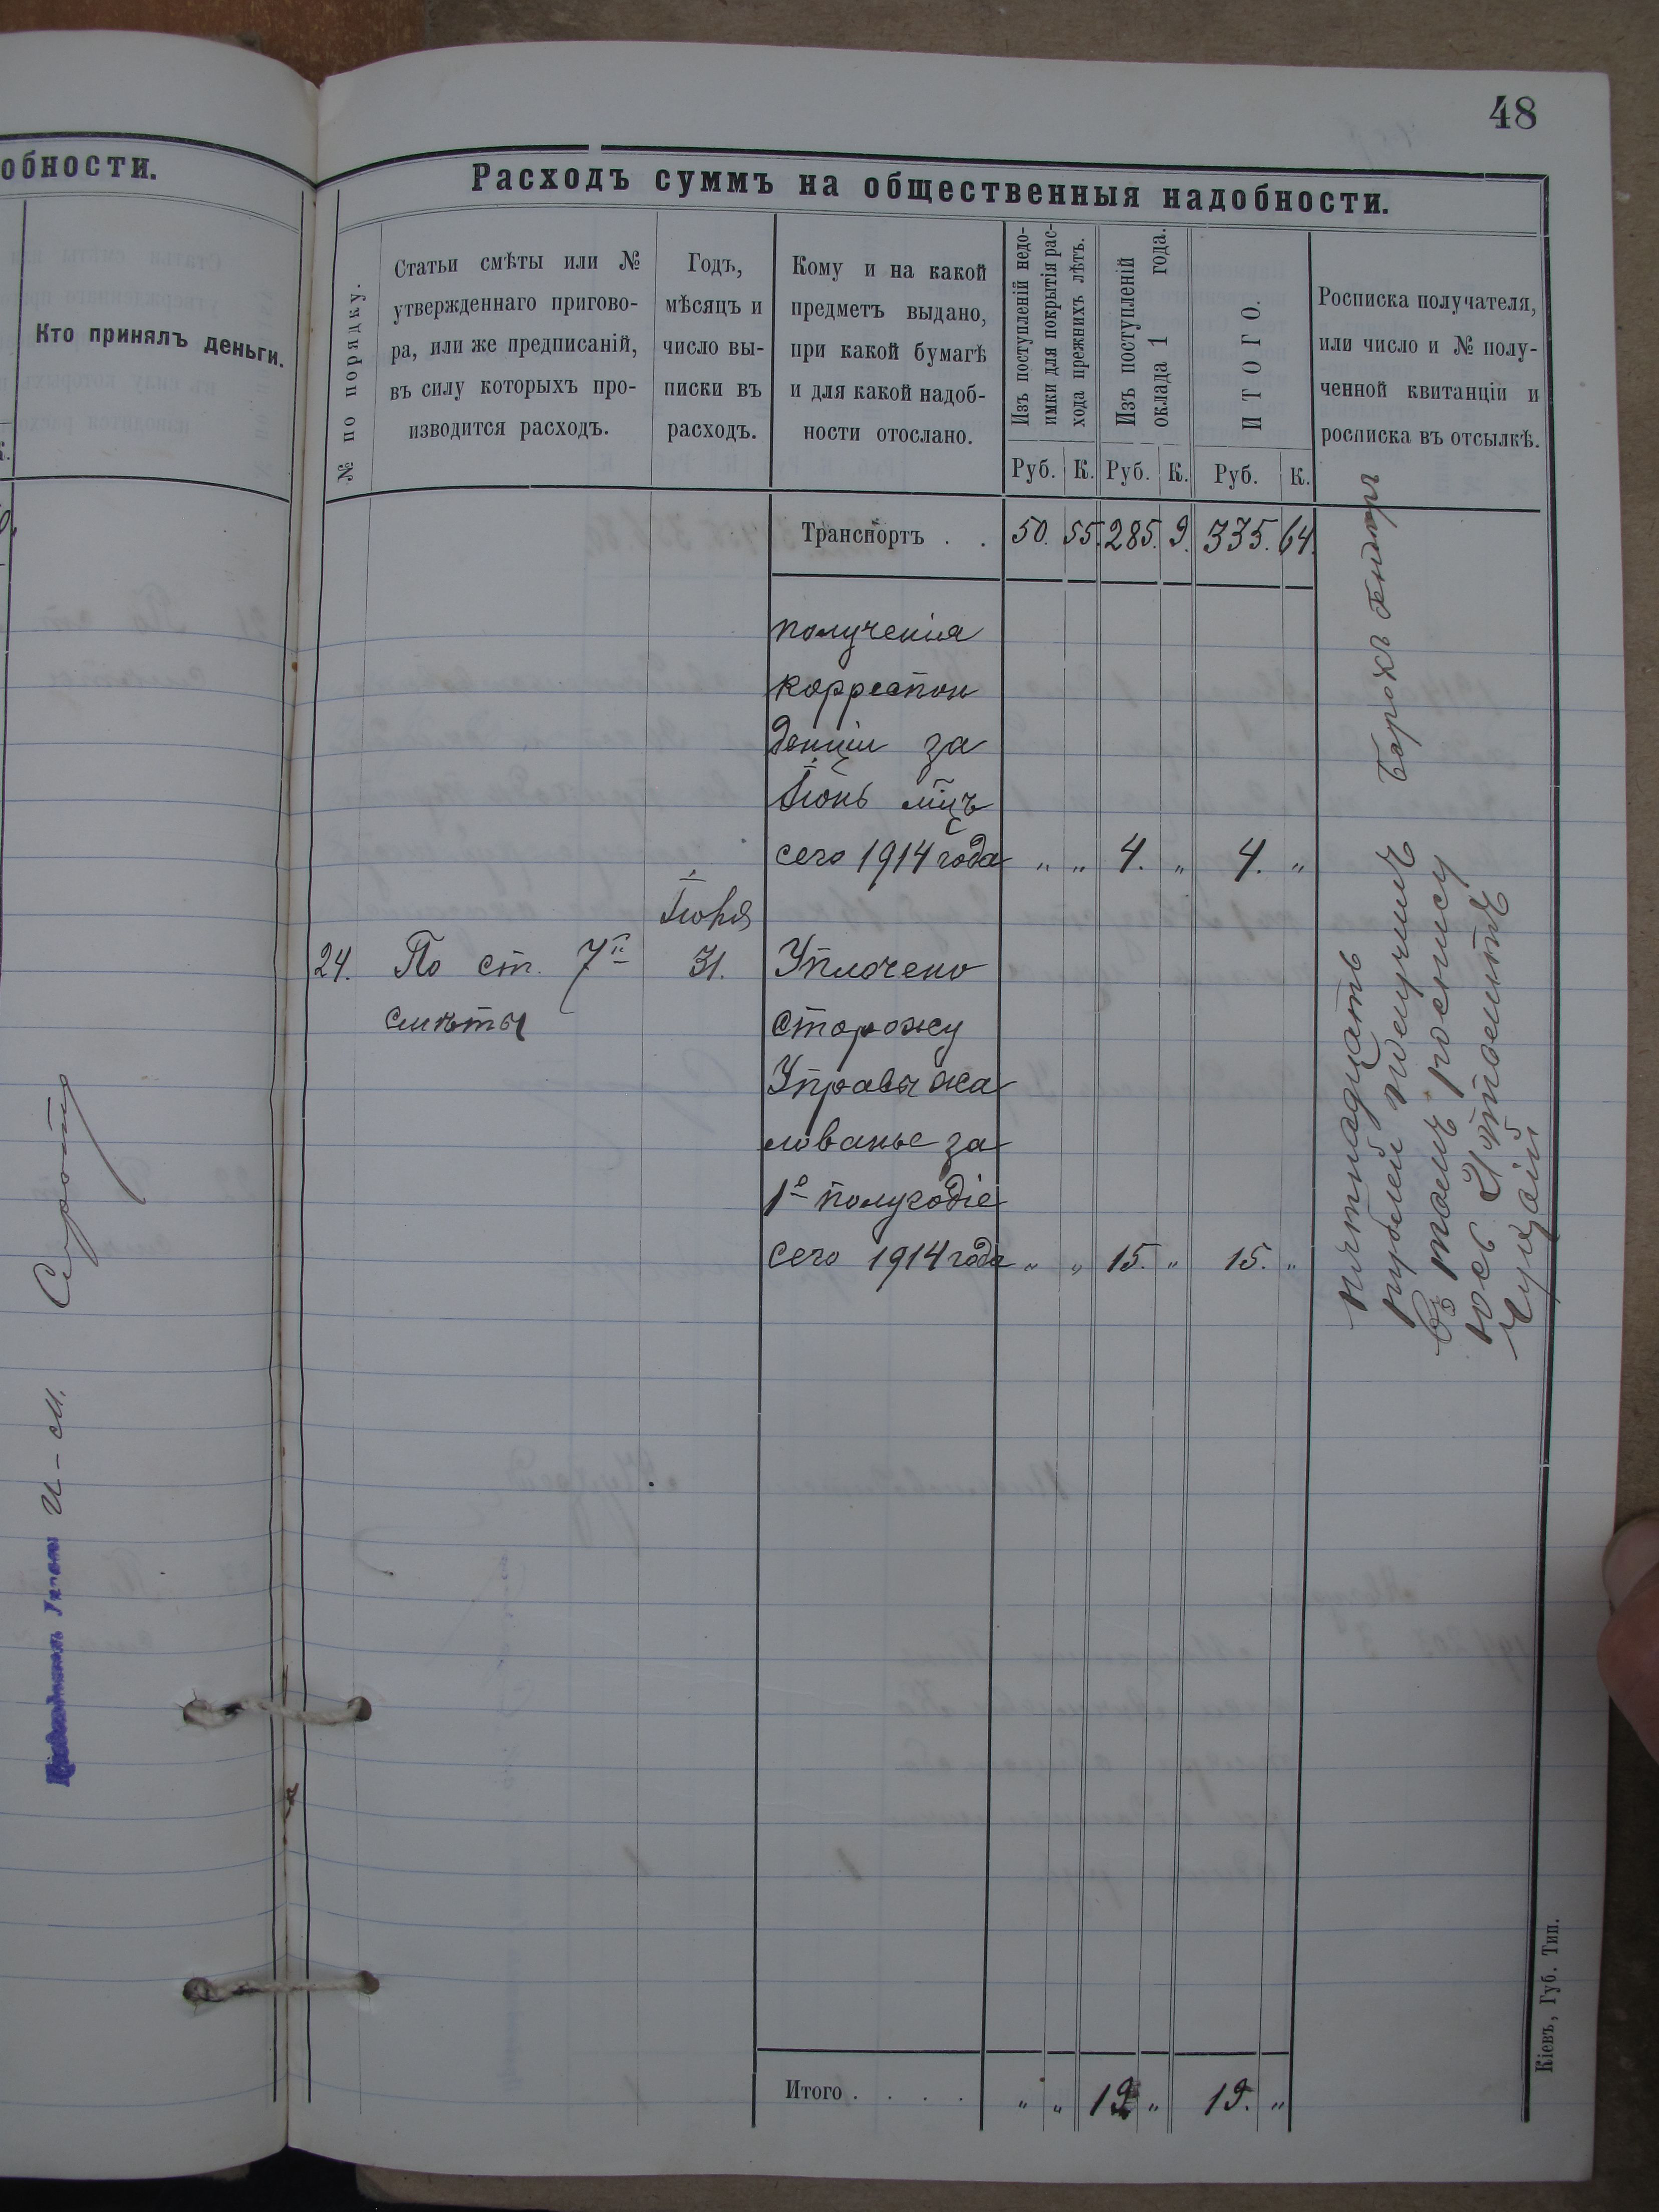 обности.
Кто принялъ деньги.
И-М. Сирот
48
Расходъ суммъ на общественныя надобности.
№ по порядку.
Статьи смѣты или №
утвержденнаго пригово-
ра, или же предписаній,
въ силу которыхъ про-
изводится расходъ.
Годъ,
мѣсяцъ и
число вы-
писки въ
расходъ.
Кому и на какой
предметъ выдано,
при какой бумагѣ
и для какой надоб-
ности отослано.
Изъ поступленій недо-
имки для покрытія рас-
хода прежнихъ лѣтъ.
Изъ поступленій
оклада 1 года.
ИТОГО.
Росписка получателя,
или число и № полу-
ченной квитанціи и
росписка въ отсылкѣ.
Руб. К. Руб. К. Руб. К.
Транспортъ . . 50. 55. 285. 9. 335. 64.
полученія
корреспон
денціи за
Іюнь мцъ
сего 1914 года „ „ 4. „ 4. „
Борохъ
Іюня
24. По ст. 7й 31. Уплочено
смѣты сторожу
Управы жа
лованье за
1е полугодіе
сего 1914 года „ „ 15. „ 15. „
пятнадцать
рублей получилъ
въ томъ роспису
юсь
Итого . . . . „ „ 19 „ 19. „
Кіевъ, Губ. Тип.